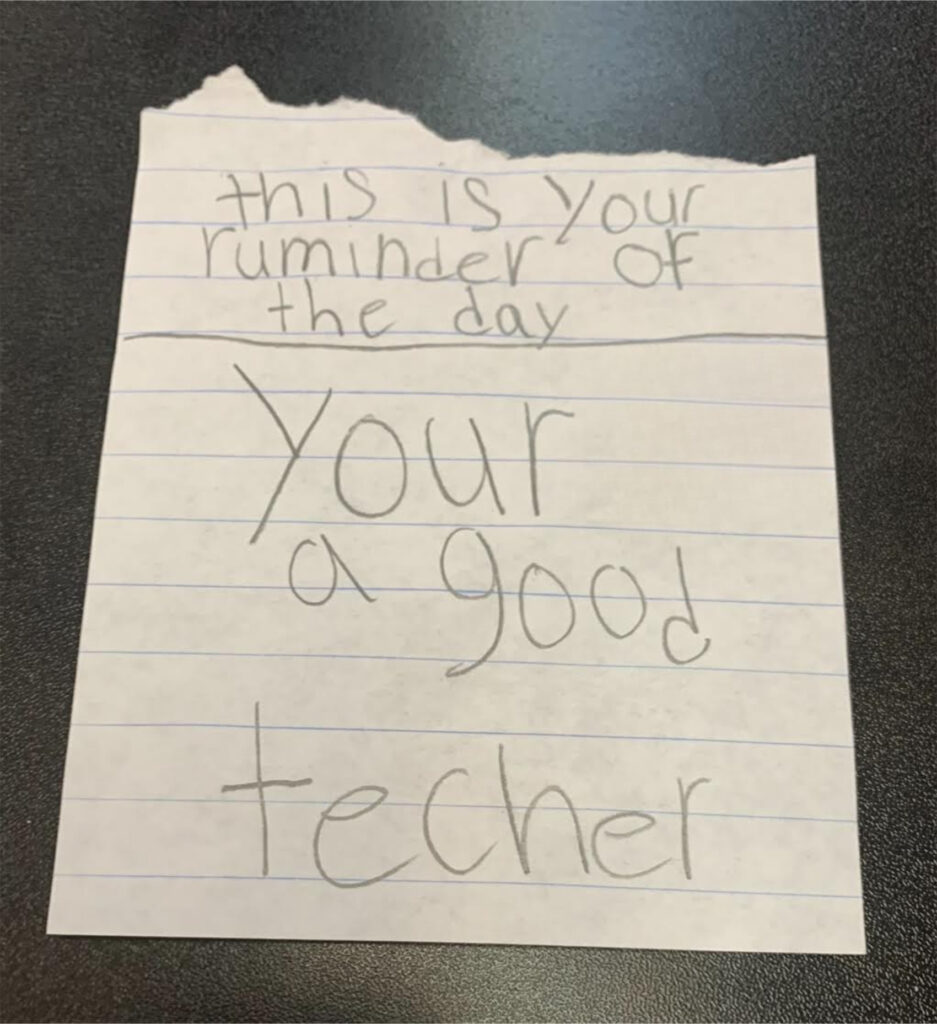 this is your
ruminder of
the day
Your
a good
techer